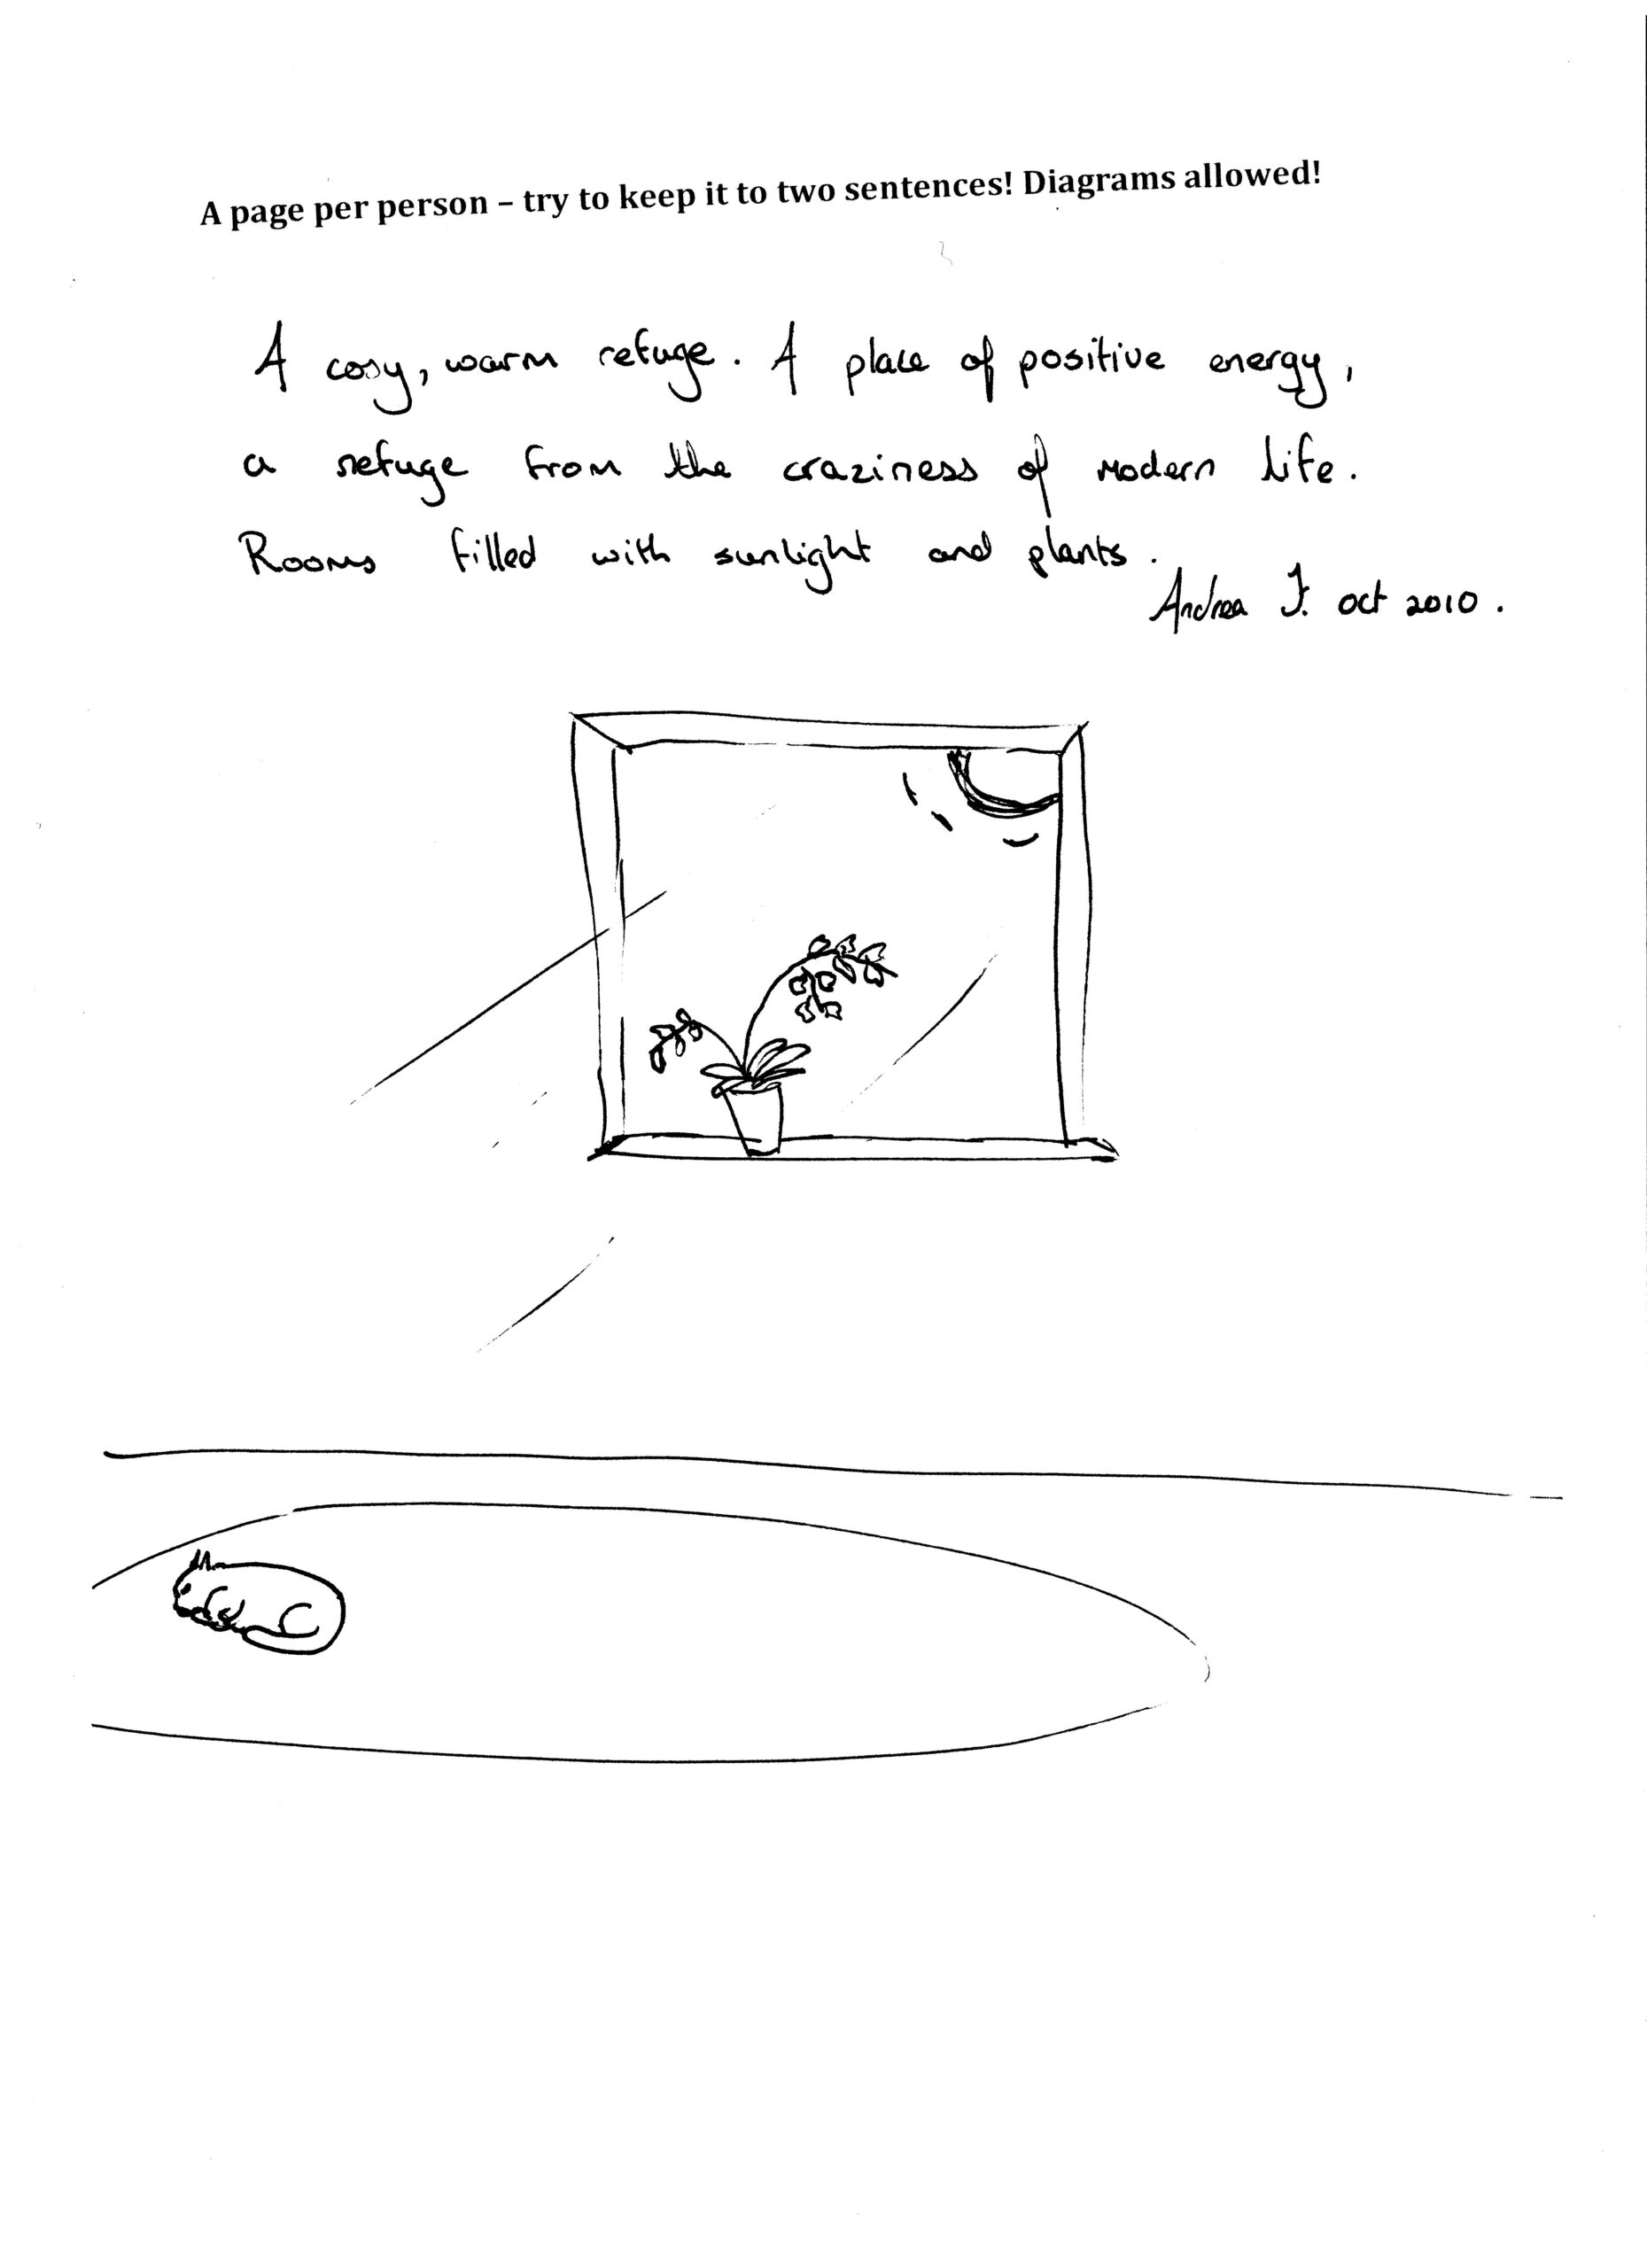 A page per person – try to keep it to two sentences! Diagrams allowed!
A cosy, warm refuge. A place of positive energy,
a refuge from the craziness of modern life.
Rooms filled with sunlight and plants.
Andrea J. oct 2010.